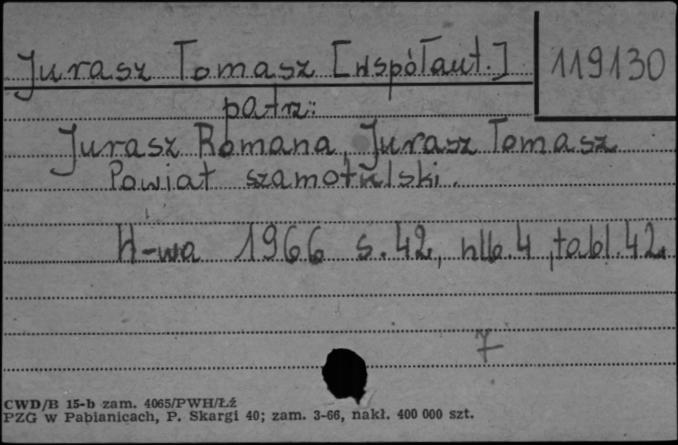 Jurasz Tomasz [współaut.]
119130
patrz:
Jurasz Romana, Jurasz Tomasz
Powiat szamotulski.
W-wa 1966 s.42, nlb.4, tabl.42.
7
CWD/B 15-b zam. 4065/PWH/Łź
PZG w Pabianicach, P. Skargi 40; zam. 3-66, nakł. 400 000 szt.